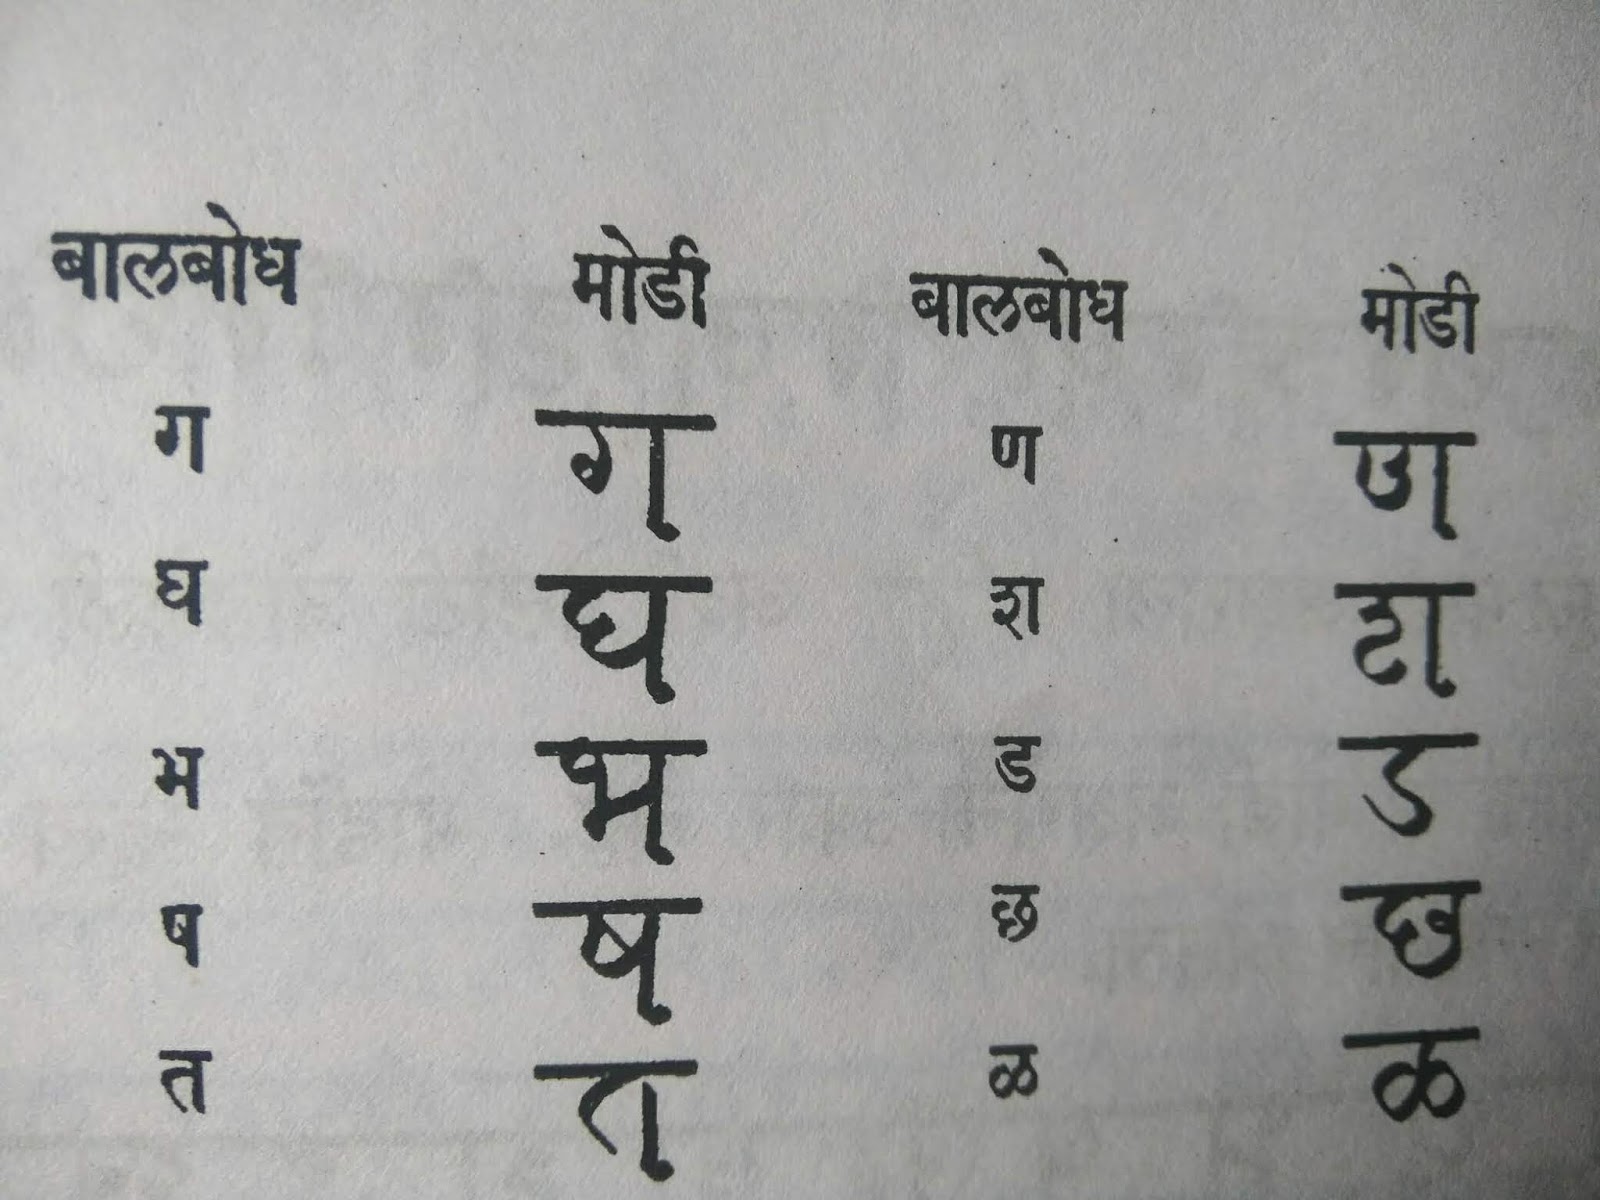 बालबोध मोडी बालबोध मोडी
ग ग ण ण
घ घ श श
भ भ ड ड
ष ष छ छ
त त ळ ळ